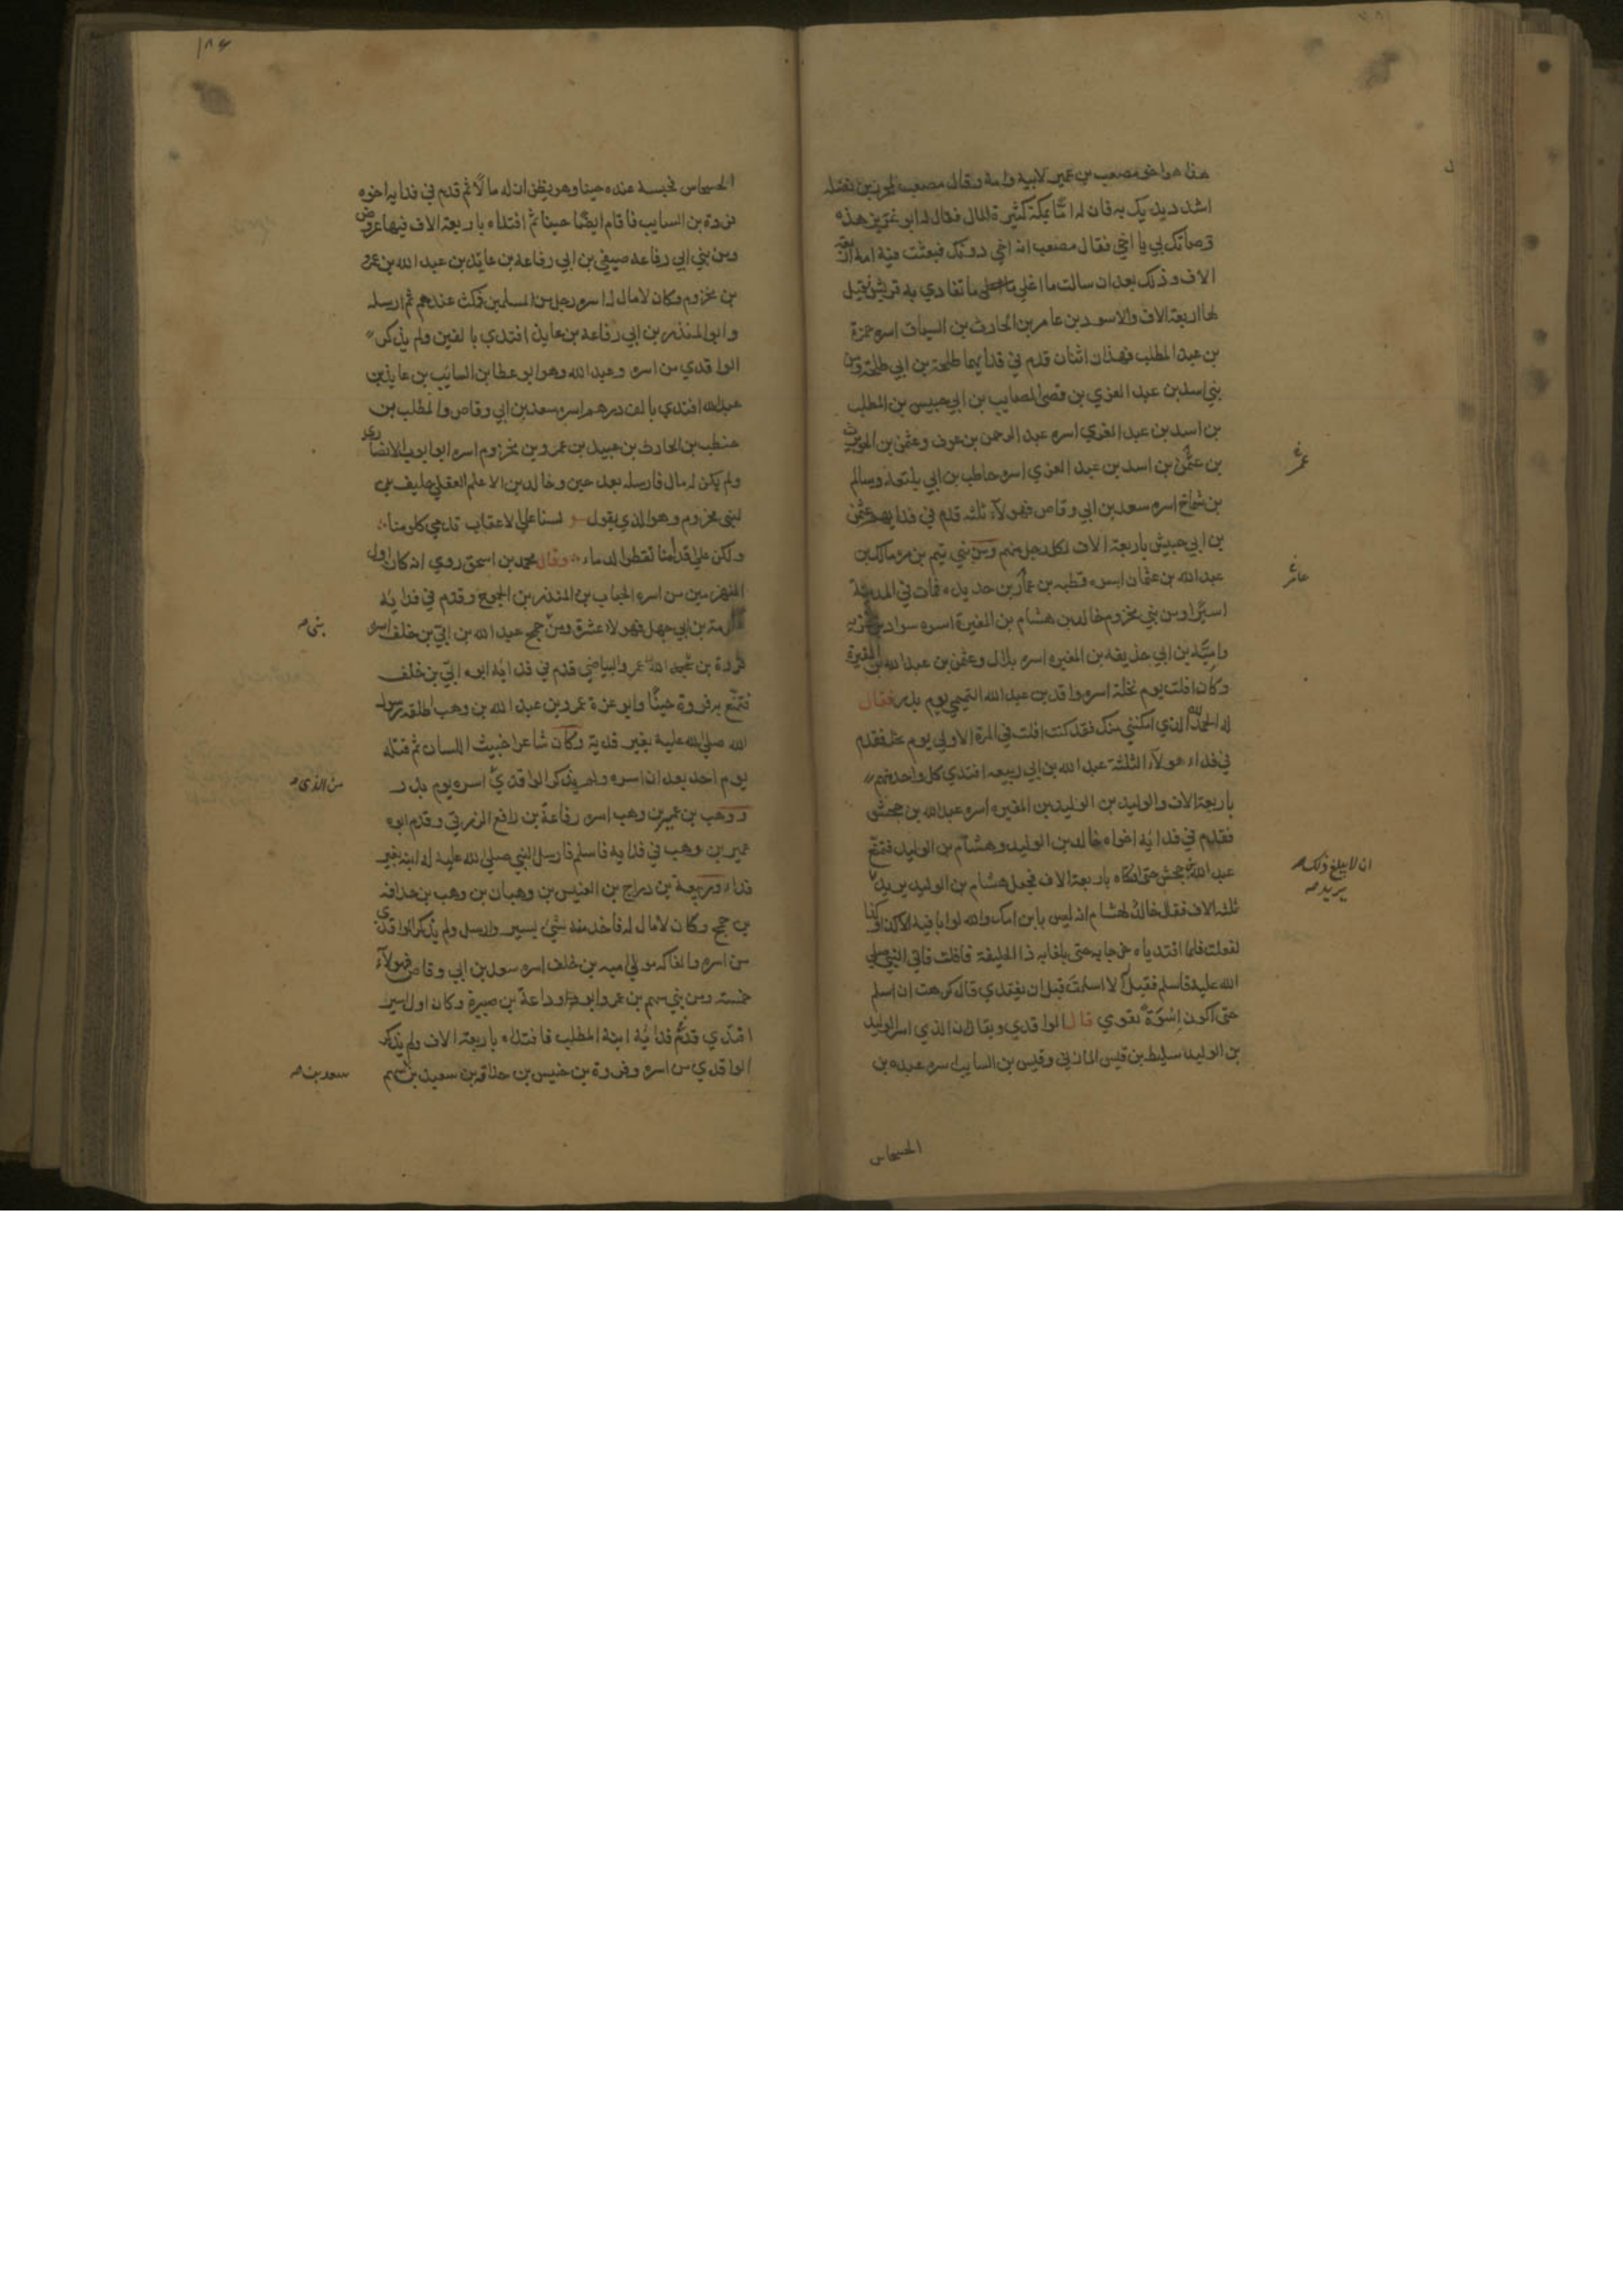 هذا هو اخي مصعب بن عمير لابيه وامه وقال مصعب لمحرز بن نضله
اشدد يديك به فان له امّا بمكة كثيرة المال فقال له ابو عزيز هذه
وصاتك بي يا اخي فقال مصعب انه اخي دونك فبعثت فيه امه اربعة
الاف وذلك بعد ان سالت ما اغلى ما تفادي به قريش فقيل
لها اربعة الاف والاسود بن عامر بن الحارث بن السباق اسره حمزة
بن عبد المطلب فهذان اثنان قدم في فدايهما طلحة بن ابي طلحة ومن
بني اسد بن عبد العزي بن قصى السايب بن ابي حبيس بن المطلب
بن اسد بن عبد العزي اسره عبد الرحمن بن عوف وعثمن بن الحويرث
بن عثمن بن اسد بن عبد العزي اسره حاطب بن ابي بلتعة وسالم
بن شماخ اسره سعد بن ابي وقاص فهولآء ثلثه قدم في فدايهم عثمن
بن ابي حبيش باربعة الاف لكل رجل منهم ومن بني تيم بن مره مالك بن
عبد الله بن عثمان اسره قطبه بن عامر بن حديده فمات في المدينة
اسيرًا ومن بني مخزوم خالد بن هشام بن المغيرة اسره سواد بن غزيه
واميّه بن ابي حذيفه بن المغيره اسره بلال وعثمن بن عبد الله بن المغيرة
وكان افلت يوم نخلة اسره واقد بن عبد الله التميمي يوم بدر فقال
له الحمد لله الذي امكنني منك فقد كنت افلت في المرة الاولي يوم نخله فقدم
في فداء هولآء الثلثة عبد الله بن ابي ربيعه افتدي كل واحد منهم
باربعة الاف والوليد بن الوليد بن المغيره اسره عبد الله بن جحش
فقدم في فدايه اخواه خالد بن الوليد وهشام بن الوليد فتمنّع
عبد الله بن جحش حتى افتكاه باربعة الاف فجعل هشام بن الوليد يريد
ثلثه الاف فقال خالد لهشام انه ليس بابن امك والله لو ابا فيه الا كذا وكذا
لفعلت فلما افتدياه خرجا به حتى بلغا به ذا الحليفة فافلت فاتي النبي صلى
الله عليه فاسلم فقيل له الا اسلمت قبل ان تفتدي قال كرهت ان اسلم
حتى اكون اسوة بقومي قال الواقدي ويقال ان الذي اسر الوليد
بن الوليد سليط بن قيس المازني وقيس بن السايب اسره عبده بن
الحسحاس
عمرو
عامر
ان لا يبلغ ذلك صح
يريد صح
١٨٤
الحسحاس فحبسه عنده حينا وهو يظن ان له مالًا ثم قدم في فدايه اخوه
فروة بن السايب فاقام ايضًا حينا ثم افتداه باربعة الاف فيها عروض
ومن بني ابي رفاعه صيفي بن ابي رفاعه بن عايذ بن عبد الله بن عمرو
بن مخزوم وكان لا مال له اسره رجل من المسلمين فمكث عندهم ثم ارسله
وابو المنذر بن ابي رفاعه بن عايذ افتدي بالفين ولم يذكر
الواقدي من اسره وعبد الله وهو ابو عطا بن السايب بن عايذ بن
عبد الله افتدي بالف درهم اسره سعد بن ابي وقاص والمطلب بن
حنطب بن الحارث بن عبيد بن عمرو بن مخزوم اسره ابو ايوب الانصاري
ولم يكن له مال فارسله بعد حين وخالد بن الاعلم العقيلي حليف
لبني مخزوم وهو الذي يقول لسنا على الاعقاب تدمى كلومنا
ولكن على اقدامنا تقطر الدماء وقال محمد بن اسحق روي انه كان اول
المنهزمين من اسره الحباب بن المنذر بن الجموح وقدم في فدايه
عكرمة بن ابي جهل فهولاء عشرة ومن جمح عبد الله بن ابيّ بن خلف اسره
فروة بن عمرو البياضي قدم في فدايه ابوه ابيّ بن خلف
فتمنّع به فروة حينًا وابو عزة عمرو بن عبد الله بن وهب اطلقه رسول
الله صلى الله عليه بغير فدية وكان شاعرا خبيث اللسان ثم قتله
يوم احد بعد ان اسره ولم يذكر الواقديّ اسره يوم بدر
ووهب بن عمير بن وهب اسره رفاعة بن رافع الزرقي وقدم ابوه
عمير بن وهب في فدايه فاسلم فارسل النبي صلى الله عليه له ابنه بغير
فداء وربيعة بن دراج بن العنبس بن وهبان بن وهب بن حذافه
بن جمح وكان لا مال له فاخذ منه شيء يسير وارسل ولم يذكر الواقدي
من اسره والفاكه مولى اميه بن خلف اسره سعد بن ابي وقاص فهولآء
خمسة ومن بني سهم بن عمرو ابو وداعة بن صبيرة وكان اول اسير
افتدي قدم فدايه ابنه المطلب فافتداه باربعة الاف ولم يذكر
الواقدي من اسره وفروة بن خنيس بن حذافه بن سعيد بن سهم
بنى صح
من الذى صح
سعد بن صح